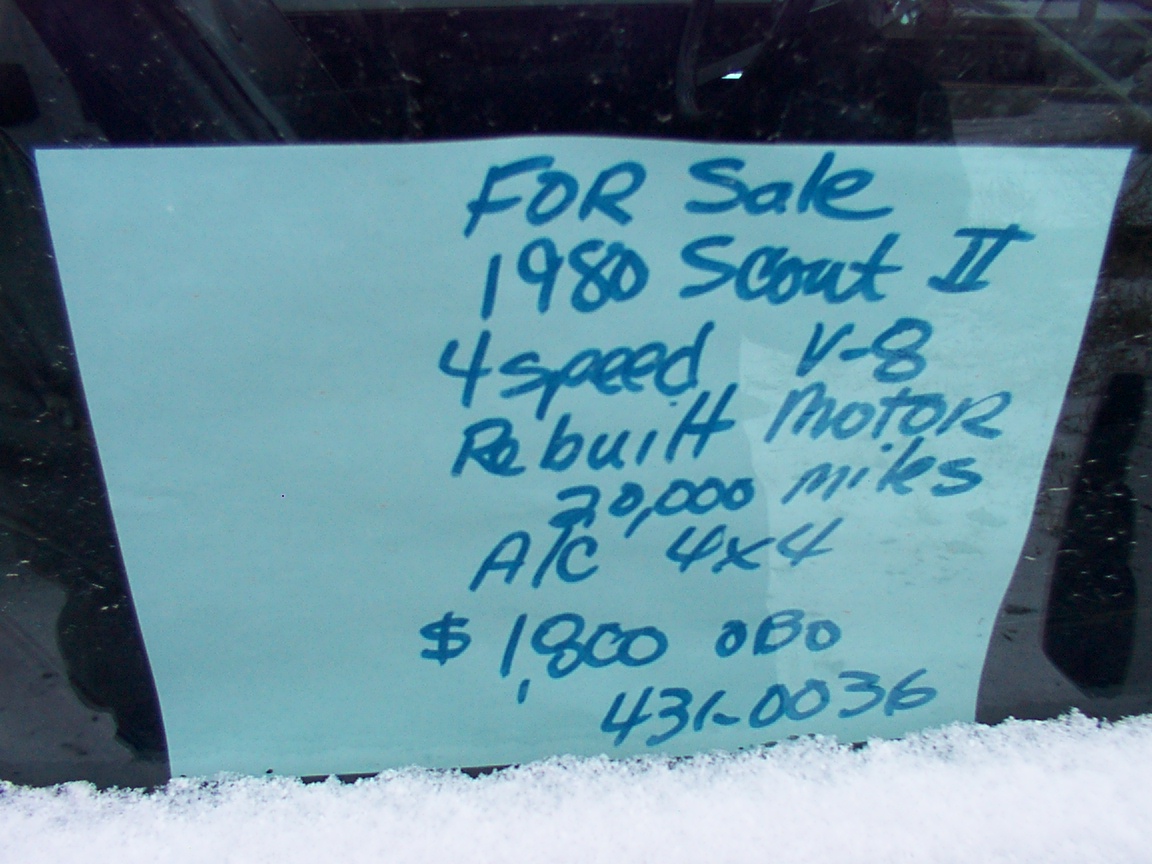 FOR Sale
1980 Scout II
4 speed V-8
Rebuilt Motor
20,000 miles
A/C 4x4
$1,800 OBO
431-0036